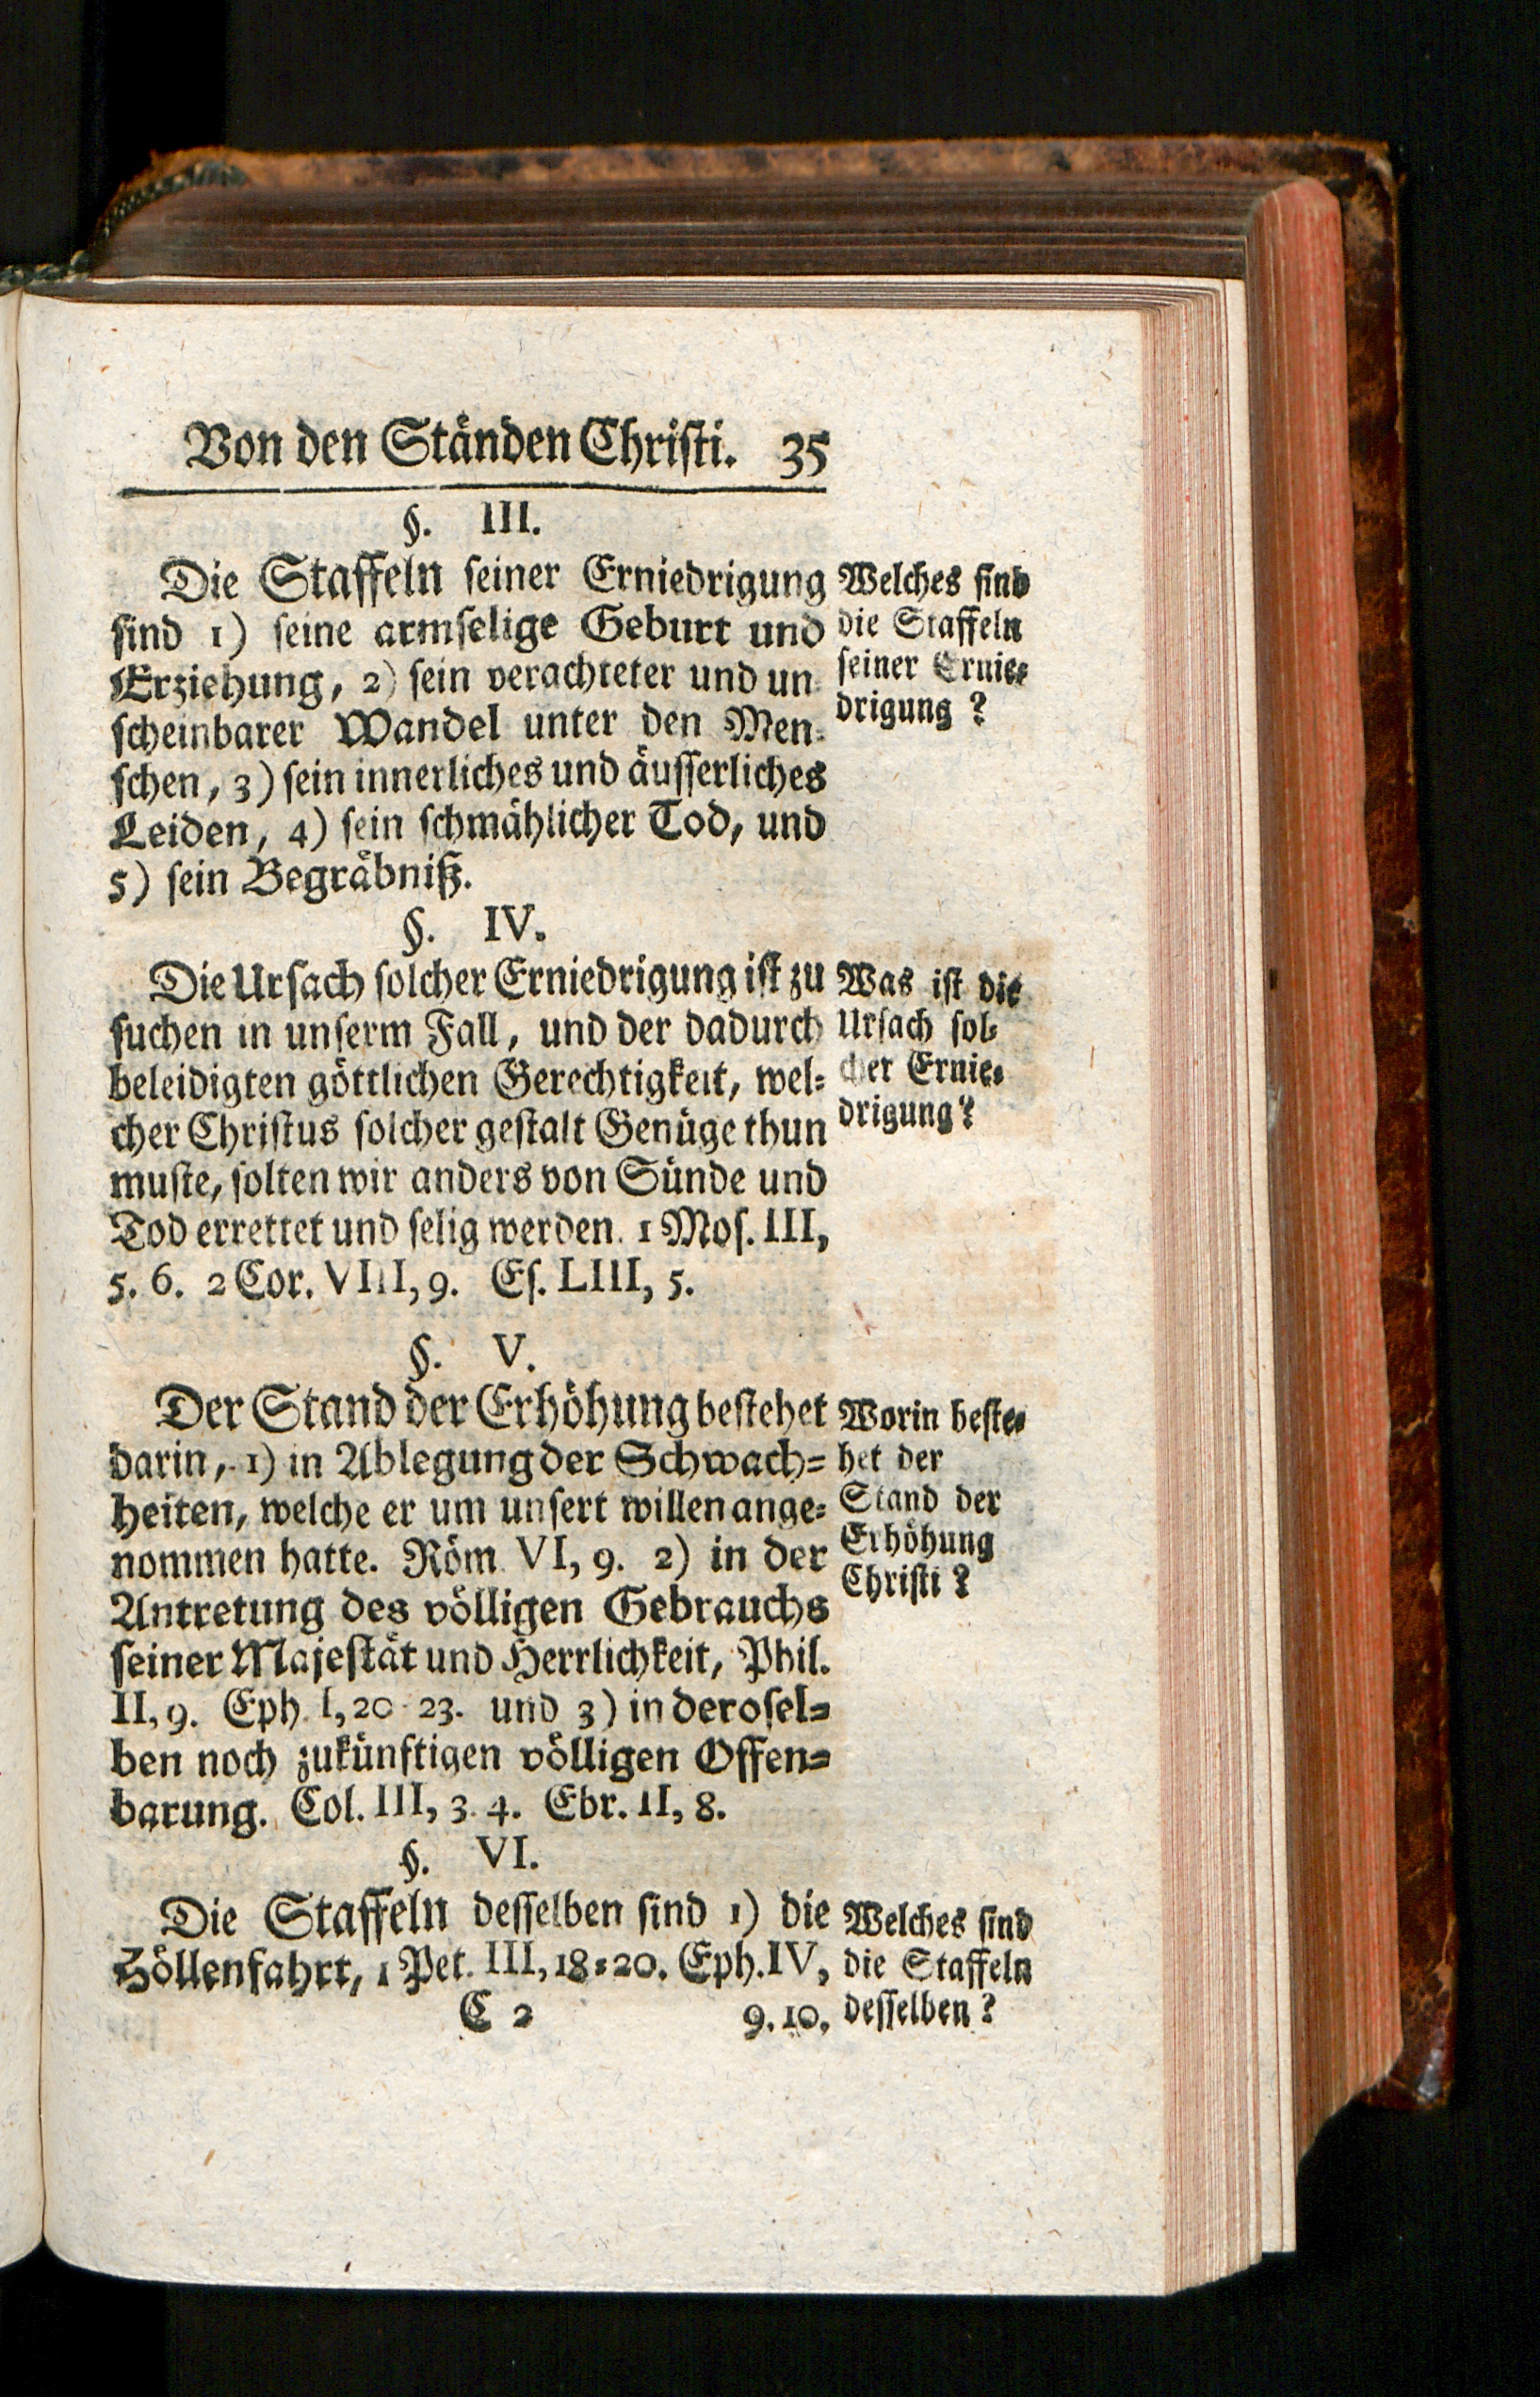 Von den Ständen Christi. 35
§. III.
Die Staffeln seiner Erniedrigung
sind 1) seine armselige Geburt und
Erziehung, 2) sein verachteter und un-
scheinbarer Wandel unter den Men-
schen, 3) sein innerliches und äusserliches
Leiden, 4) sein schmählicher Tod, und
5) sein Begräbniß.
Welches sind
die Staffeln
seiner Ernie-
drigung?
§. IV.
Die Ursach solcher Erniedrigung ist zu
suchen in unserm Fall, und der dadurch
beleidigten göttlichen Gerechtigkeit, wel-
cher Christus solcher gestalt Genüge thun
muste, solten wir anders von Sünde und
Tod errettet und selig werden. 1 Mos. III,
5. 6. 2 Cor. VIII, 9. Es. LIII, 5.
Was ist die
Ursach sol-
cher Ernie-
drigung?
§. V.
Der Stand der Erhöhung bestehet
darin, 1) in Ablegung der Schwach-
heiten, welche er um unsert willen ange-
nommen hatte. Röm. VI, 9. 2) in der
Antretung des völligen Gebrauchs
seiner Majestät und Herrlichkeit, Phil.
II, 9. Eph. I, 20-23. und 3) in derosel-
ben noch zukünftigen völligen Offen-
barung. Col. III, 3. 4. Ebr. II, 8.
Worin beste-
het der
Stand der
Erhöhung
Christi?
§. VI.
Die Staffeln desselben sind 1) die
Höllenfahrt, 1 Pet. III, 18-20. Eph. IV,
Welches sind
die Staffeln
desselben?
C 2 9. 10,